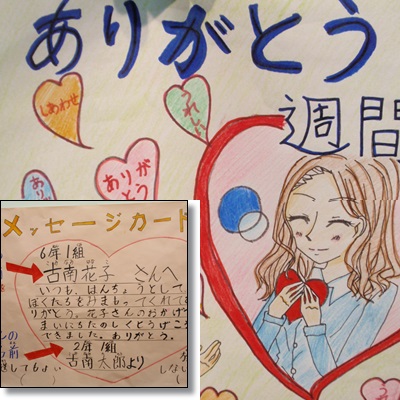 ありがとう
週間
しあわせ
うれしい
ありが
とう
メッセージカード
6年1組
古南花子 さんへ
いつも、はんちょうとして、
ぼくたちをみまもってくれてあ
りがとう。花子さんのおかげで
まいにちたのしくとうげこうが
できました。ありがとう。
2年1組
古南太郎より